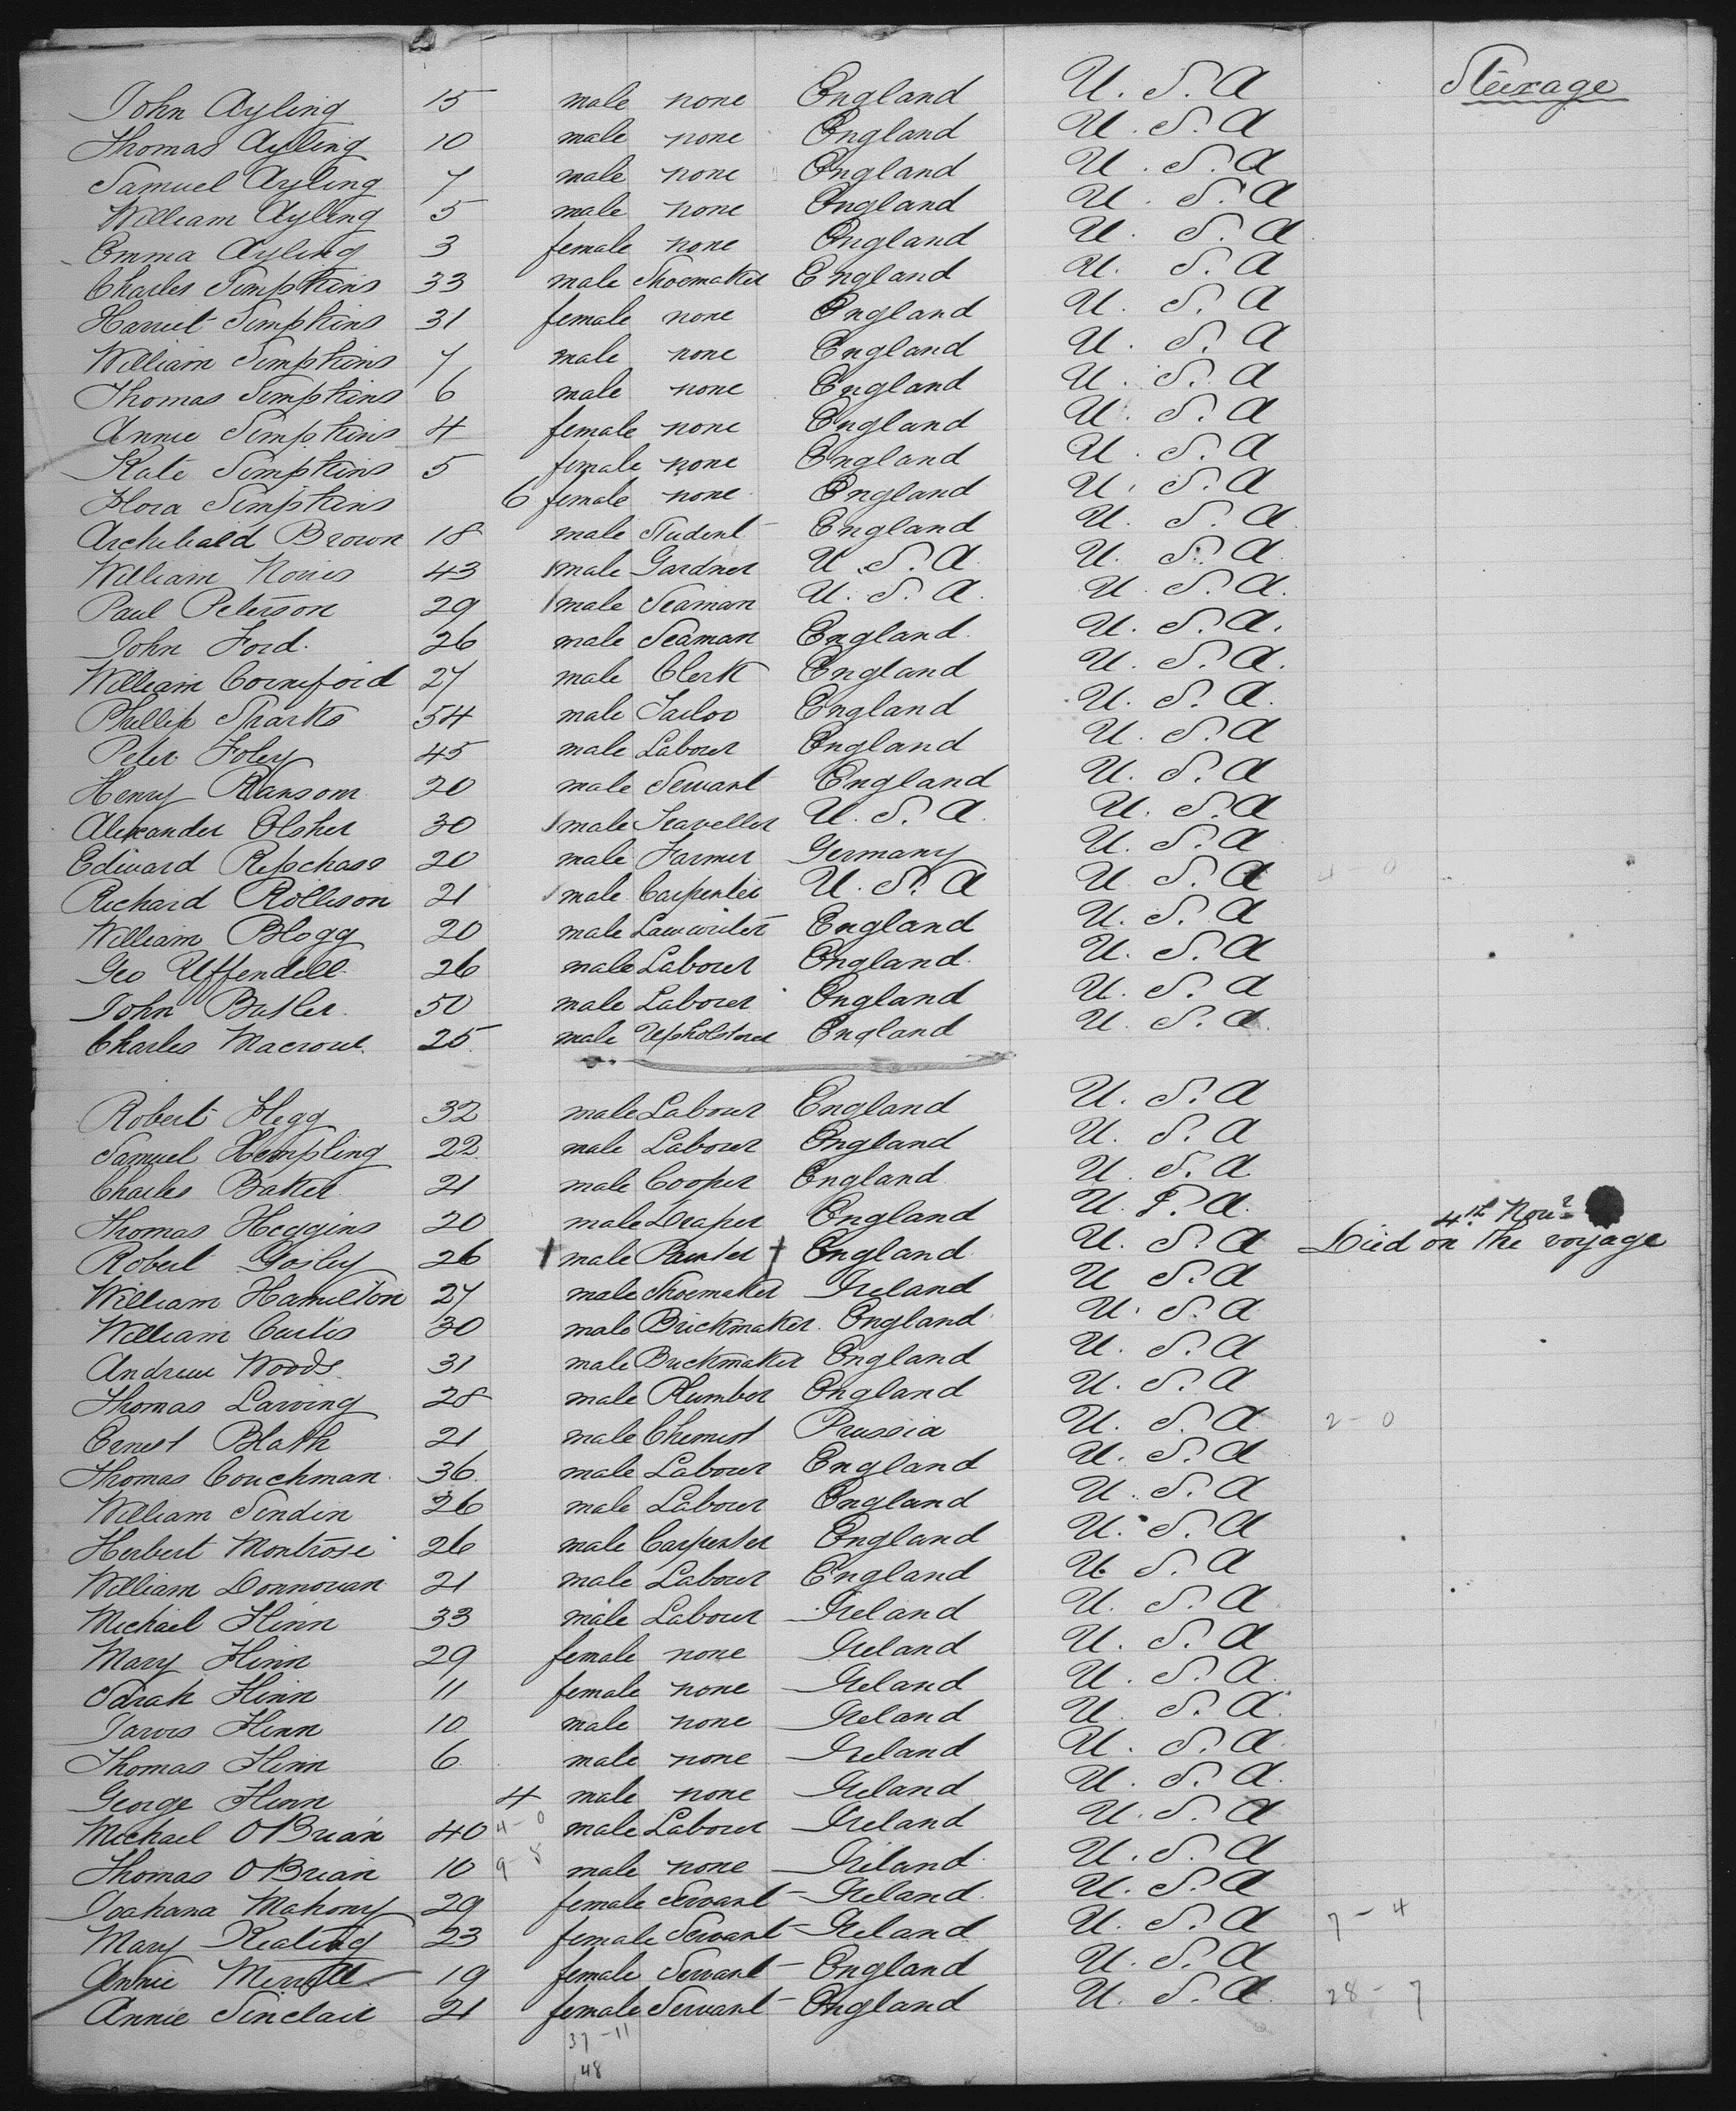 Steerage
John Ayling 15 male none England U.S.A
Thomas Ayling 10 male none England U.S.A
Samuel Ayling 7 male none England U.S.A
William Ayling 5 male none England U.S.A
Emma Ayling 3 female none England U.S.A
Charles Simpkins 33 male Shoemaker England U.S.A
Harriet Simpkins 31 female none England U.S.A
William Simpkins 7 male none England U.S.A
Thomas Simpkins 6 male none England U.S.A
Annie Simpkins 4 female none England U.S.A
Kate Simpkins 5 female none England U.S.A
Flora Simpkins 6 female none England U.S.A
Archibald Brown 18 male Student England U.S.A
William Norris 43 male Gardner U.S.A. U.S.A.
Paul Peterson 29 male Seaman U.S.A. U.S.A.
John Ford. 26 male Seaman England U.S.A.
William Corneford 27 male Clerk England U.S.A.
Phillip Sharks 54 male Tailor England U.S.A.
Peter Foley 45 male Labourer England U.S.A
Henry Ransom 20 male Servant England U.S.A
Alexander Olsher 30 male Traveller U.S.A. U.S.A
Edward 20 male Farmer Germany U.S.A
Richard Rollison 21 male Carpenter U.S.A U.S.A 4-0
William Blogg 20 male Lawwriter England U.S.A
Geo Uffendell 26 male Labourer England U.S.A
John Butler 50 male Labourer England U.S.A
Charles 25 male Upholsterer England U.S.A.
Robert Flegg 32 male Labourer England U.S.A
Samuel Hempling 22 male Labourer England U.S.A
Charles Baker 21 male Cooper England U.S.A
Thomas Heggins 20 male Draper England U.S.A. 4th Novr
Robert Gosley 26 male Painter England U.S.A Died on the voyage
William Hamilton 27 male Shoemaker Ireland U.S.A
William Curtis 30 male Brickmaker England U.S.A
Andrew Woods 31 male Brickmaker England U.S.A
Thomas Larving 28 male Plumber England U.S.A
Ernest Blath 21 male Chemist Prussia U.S.A 2-0
Thomas Couchman 36 male Labourer England U.S.A
William Sindin 26 male Labourer England U.S.A
Herbert Montrose 26 male Carpenter England U.S.A
William Donnovan 21 male Labourer England U.S.A
Michael Flinn 33 male Labourer Ireland U.S.A
Mary Flinn 29 female none Ireland U.S.A
Sarah Flinn 11 female none Ireland U.S.A
Jarvis Flinn 10 male none Ireland U.S.A
Thomas Flinn 6 male none Ireland U.S.A
George Flinn 4 male none Ireland U.S.A.
Michael O Brian 40 4-0 male Labourer Ireland U.S.A
Thomas O Brian 10 9-8 male none Ireland U.S.A
Joahana Mahony 29 female Servant Ireland U.S.A
Mary Keating 23 female Servant Ireland U.S.A 7-4
Annie 19 female Servant England U.S.A
Annie Sinclair 21 female Servant England U.S.A 28-7
37-11
48